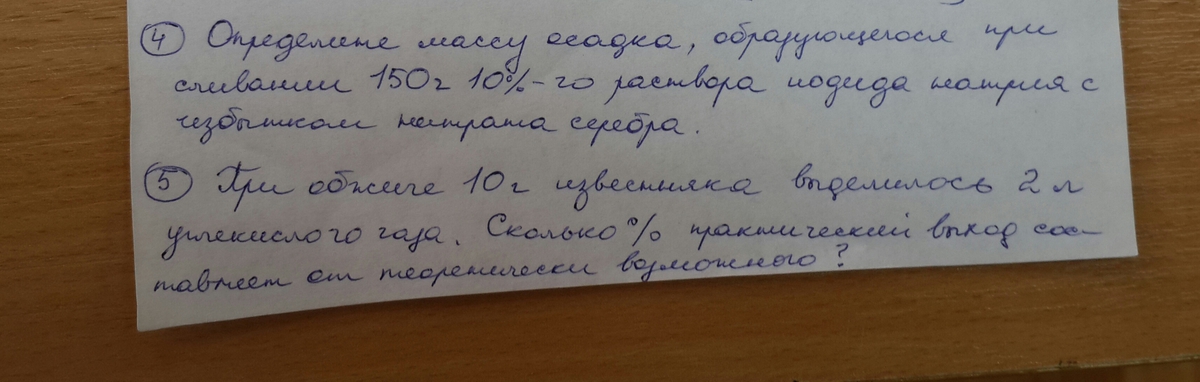 ④ Определите массу осадка, образующегося при
сливании 150г 10%-го раствора иодида натрия с
избытком нитрата серебра.
⑤ При обжиге 10г известняка выделилось 2 л
углекислого газа. Сколько % практический выход сос-
тавляет от теоретически возможного?